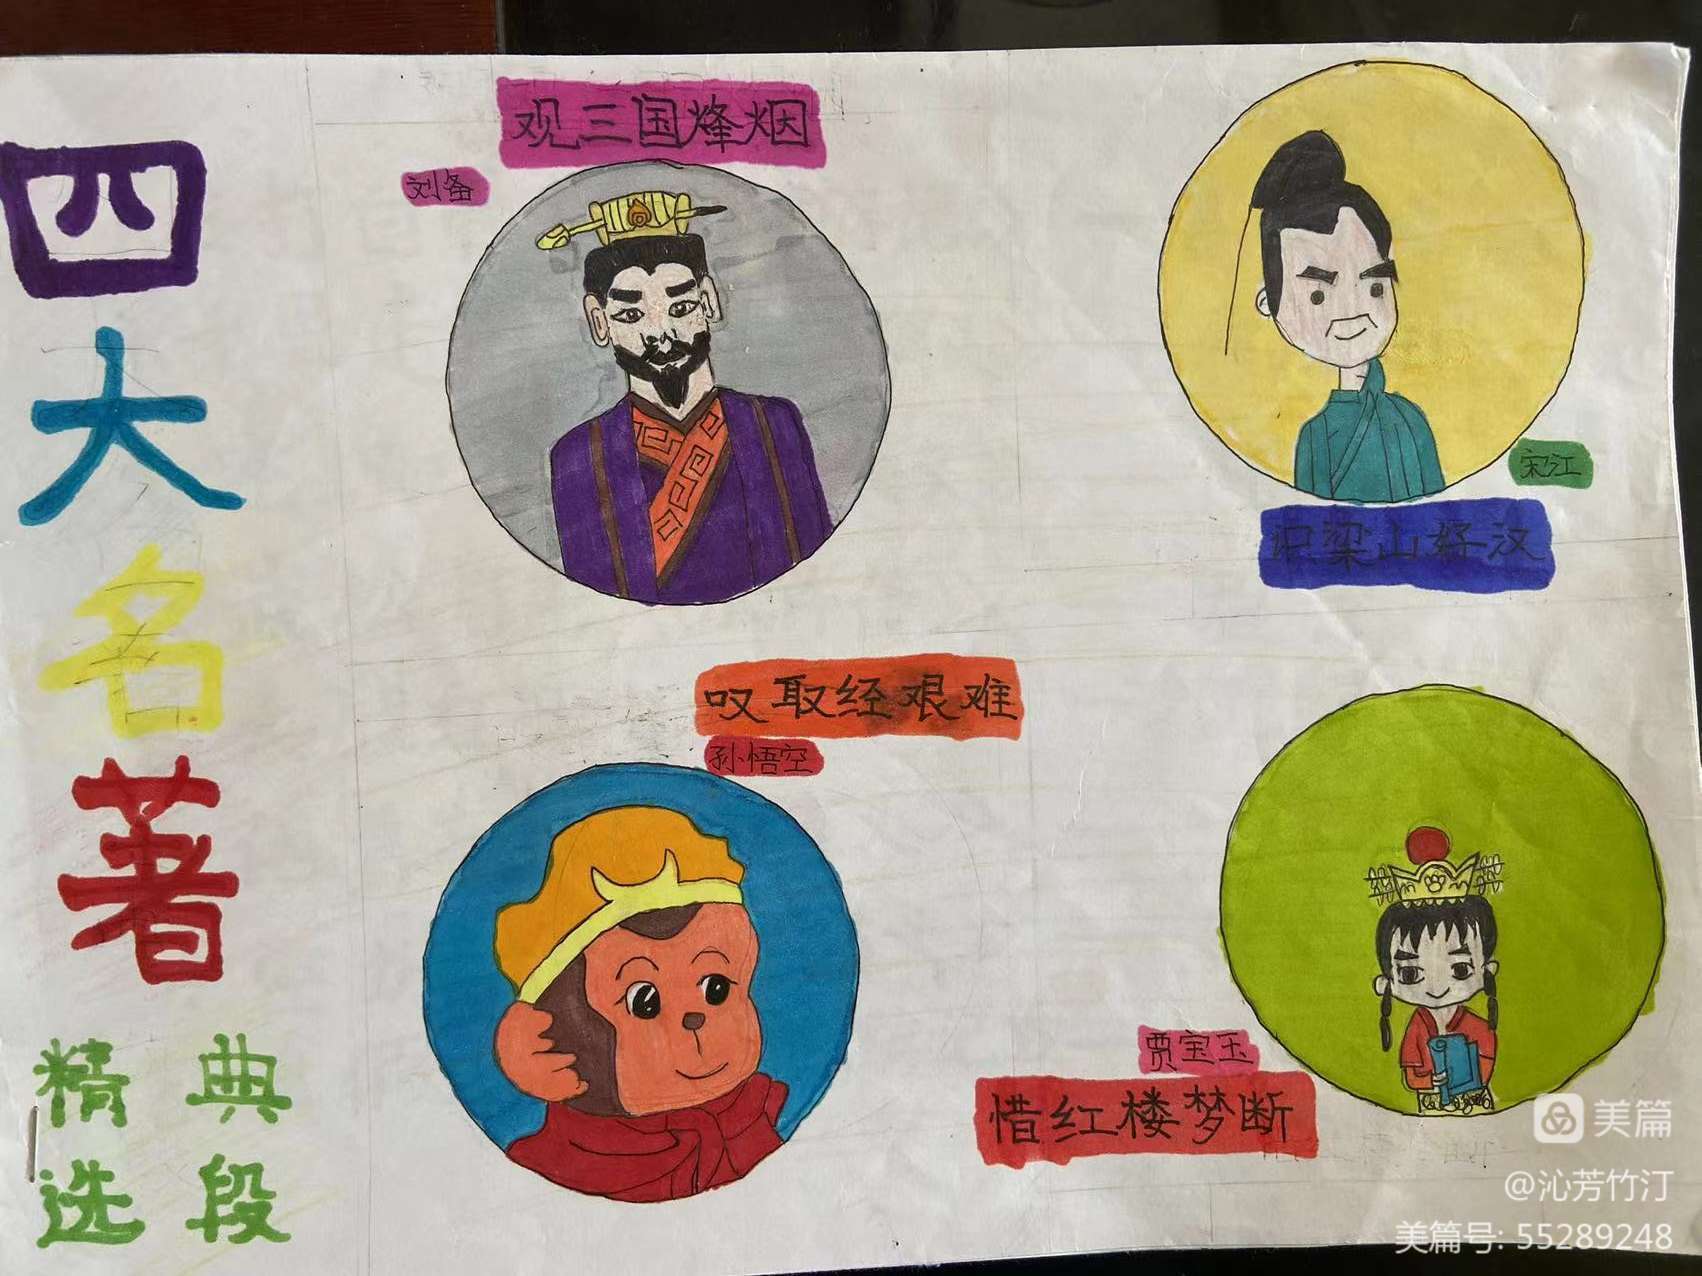 四大名著
精典
选段
观三国烽烟
刘备
宋江
识梁山好汉
叹取经艰难
孙悟空
贾宝玉
惜红楼梦断
美篇
@沁芳竹汀
美篇号: 55289248